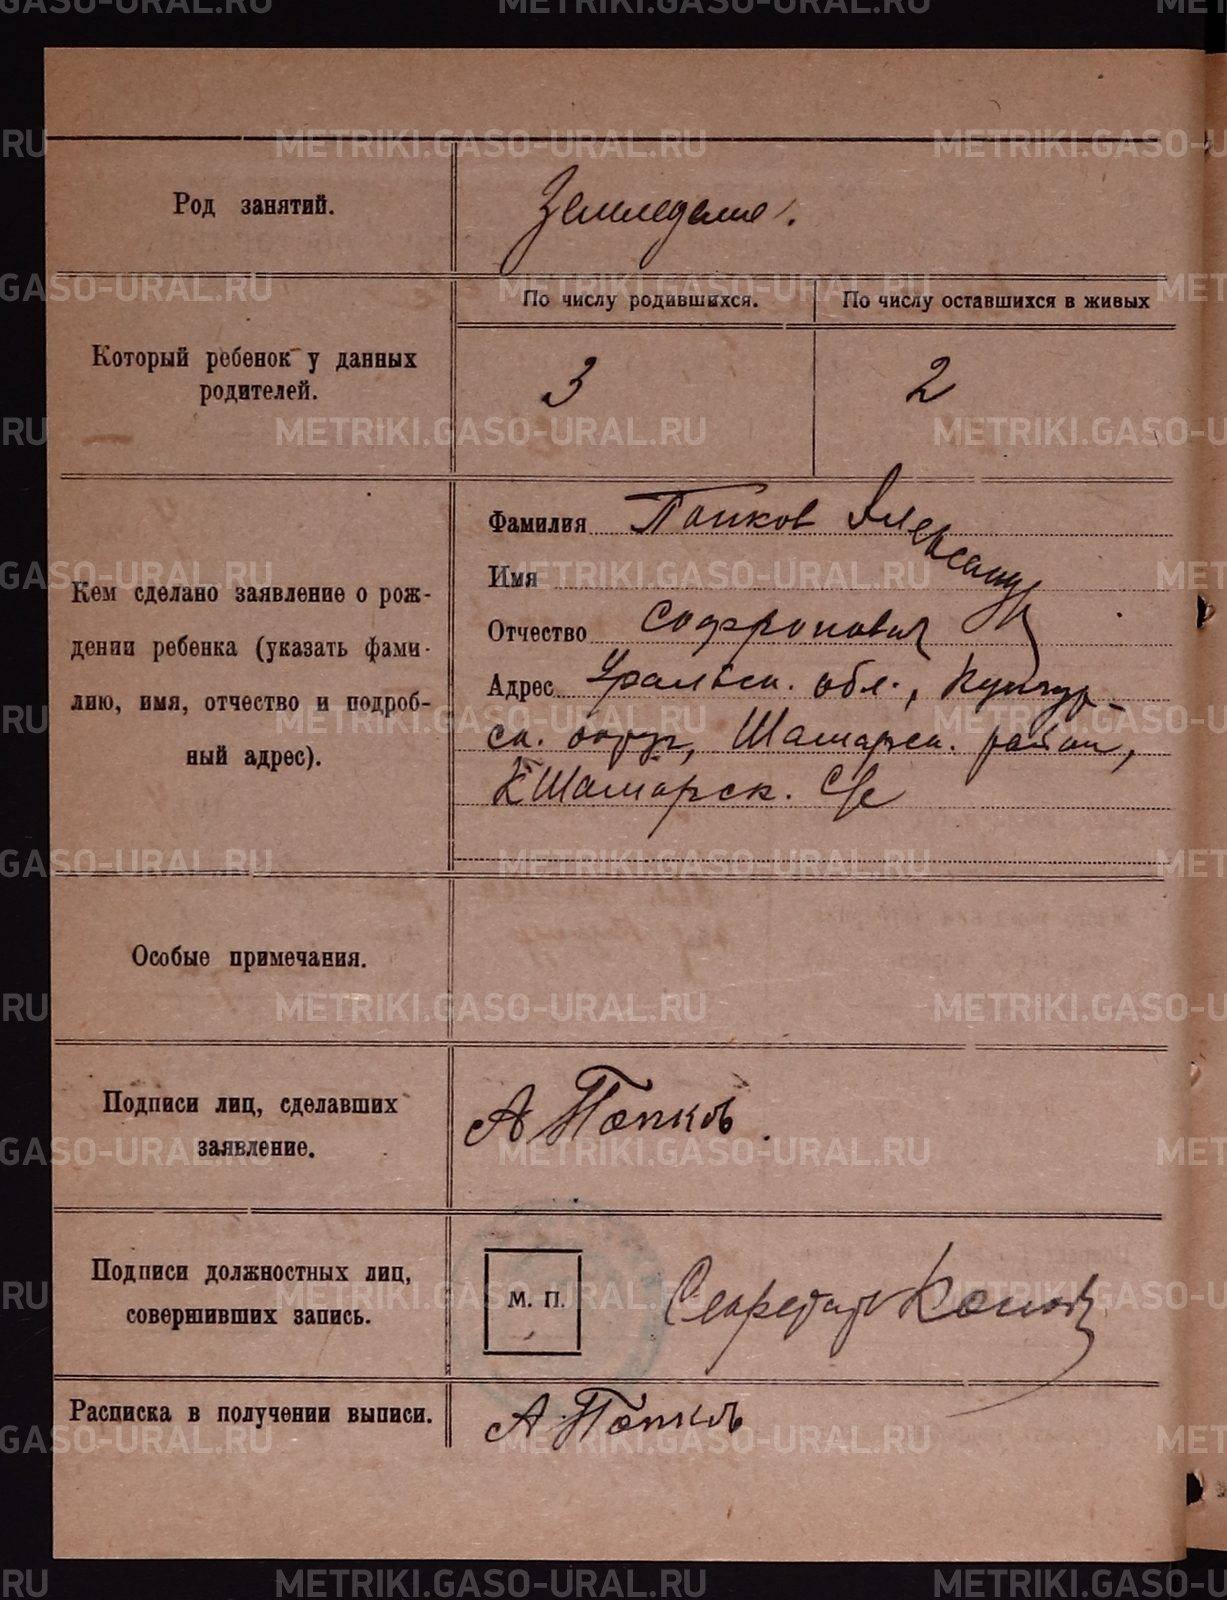 Род занятий.
Земледелие.
Который ребенок у данных
родителей.
По числу родившихся.
По числу оставшихся в живых
3
2
Кем сделано заявление о рож-
дении ребенка (указать фами-
лию, имя, отчество и подроб-
ный адрес).
Фамилия Папков Александр
Имя
Отчество Софронович
Адрес Уральск. обл., Кунгур-
ск. округ, Шамарск. район,
Шамарск. С/с
Особые примечания.
Подписи лиц, сделавших
заявление.
А Попков.
Подписи должностных лиц,
совершивших запись.
М. П.
Секретарь
Расписка в получении выписи.
А Попков
METRIKI.GASO-URAL.RU